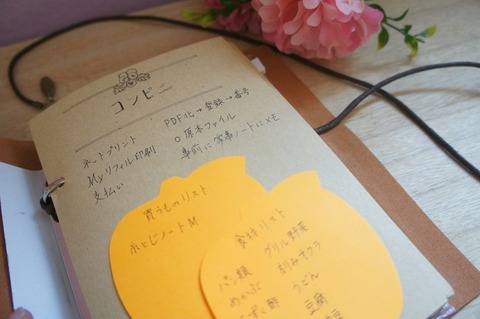 コンビニ
ネットプリント
Myリフィル印刷
支払い
PDF化→登録→番号
○原本ファイル
事前に家事ノートにメモ
買うものリスト
糸とじノートM
食材リスト
パン類
めかぶ
もずく酢
グリル野菜
刻みオクラ
うどん
豆腐